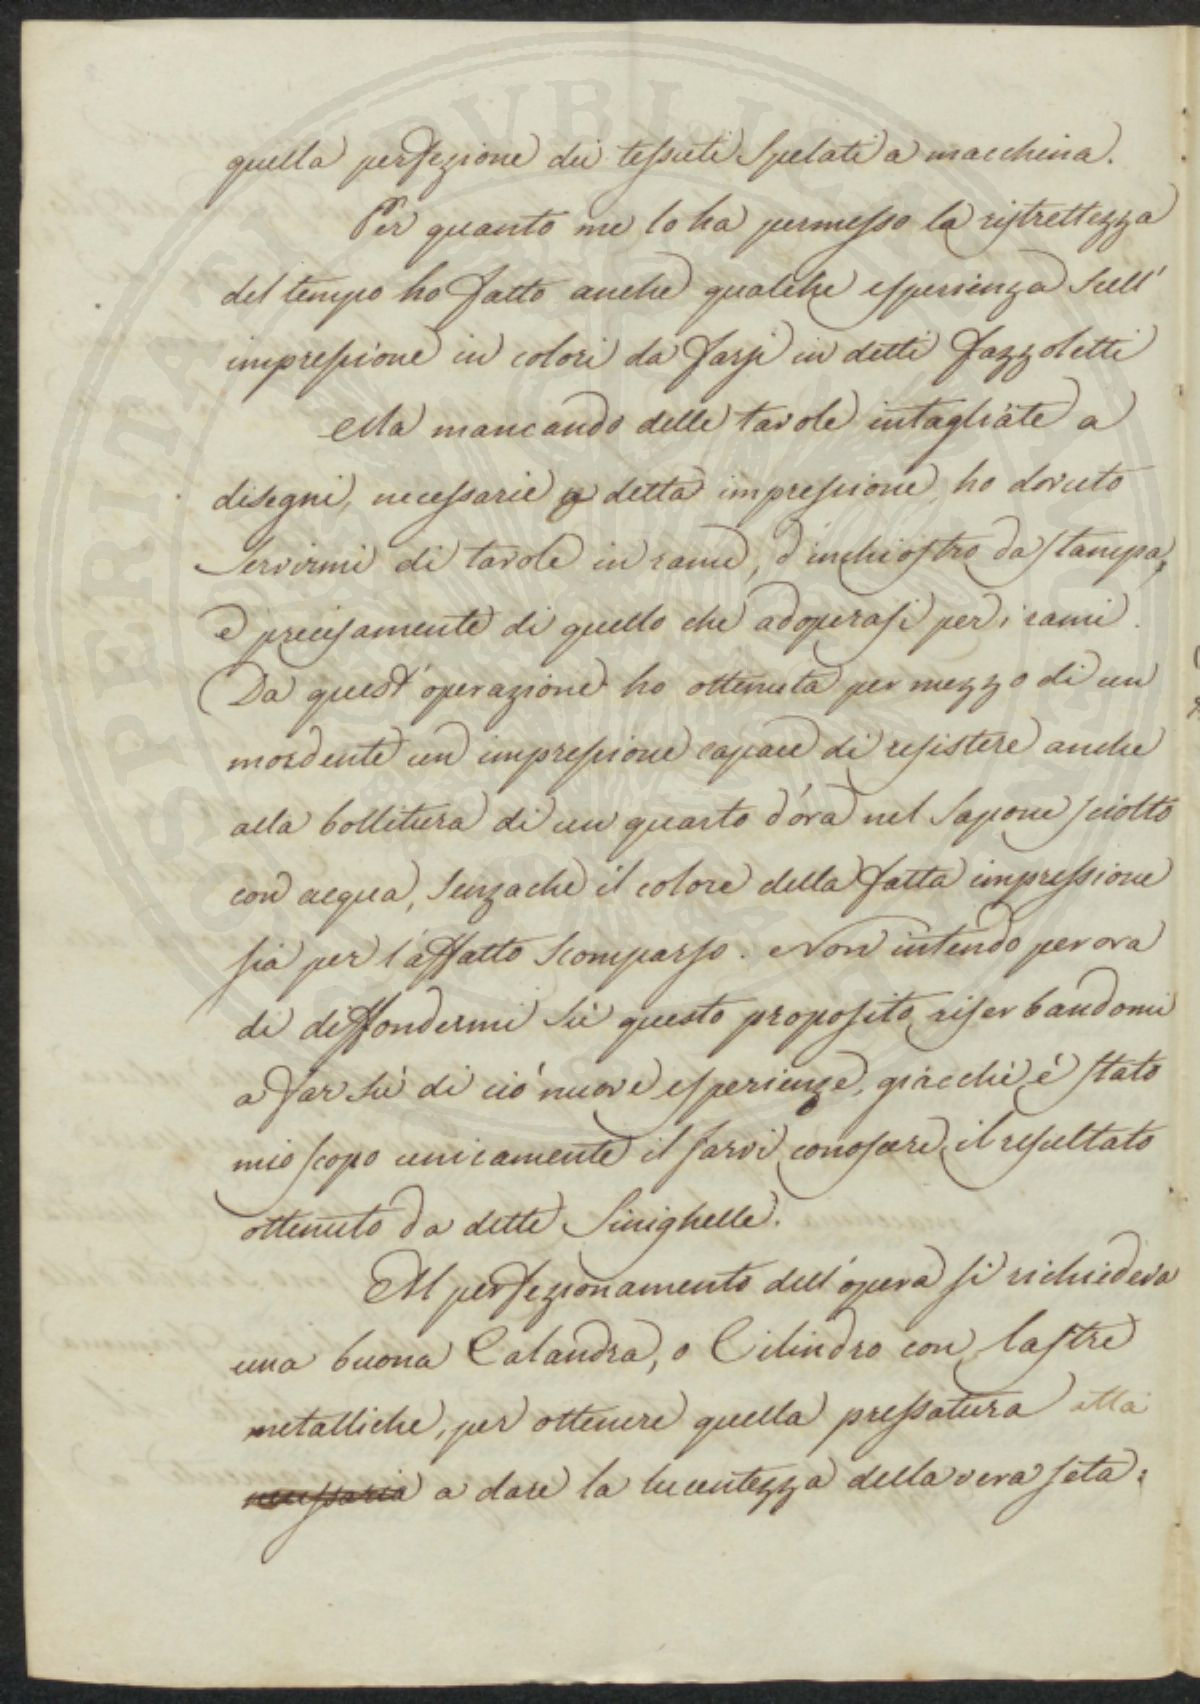 quella perfezione dei tessuti Spelati a macchina.
Per quanto me lo ha permesso la ristrettezza
del tempo ho fatto anche qualche esperienza Sull'
impressione in colori da farsi in detti fazzoletti
Ma mancando delle tavole intagliate a
disegni, necessarie a detta impressione, ho dovuto
Servirmi di tavole in rame, d'inchiostro da stampa,
e precisamente di quello che adoperasi per i rami.
Da quest'operazione ho ottenuta per mezzo di un
mordente un impressione capace di resistere anche
alla bollitura di un quarto d'óra nel Sapone sciolto
con acqua, Senzache il colore della fatta impressione
sia per l'affatto Scomparso. Non intendo per ora
di diffondermi Sù questo proposito, riserbandomi
a far Sù di ciò nuove esperienze, giacchè é stato
mio scopo unicamente il farvi conoscere il resultato
ottenuto da dette Sinighelle.
Al perfezionamento dell'opera si richiedeva
una buona Calandra, o Cilindro con lastre
metalliche, per ottenere quella pressatura atta
necessaria a dare la lucentezza della vera seta:
SPERITATI PVBLICAE